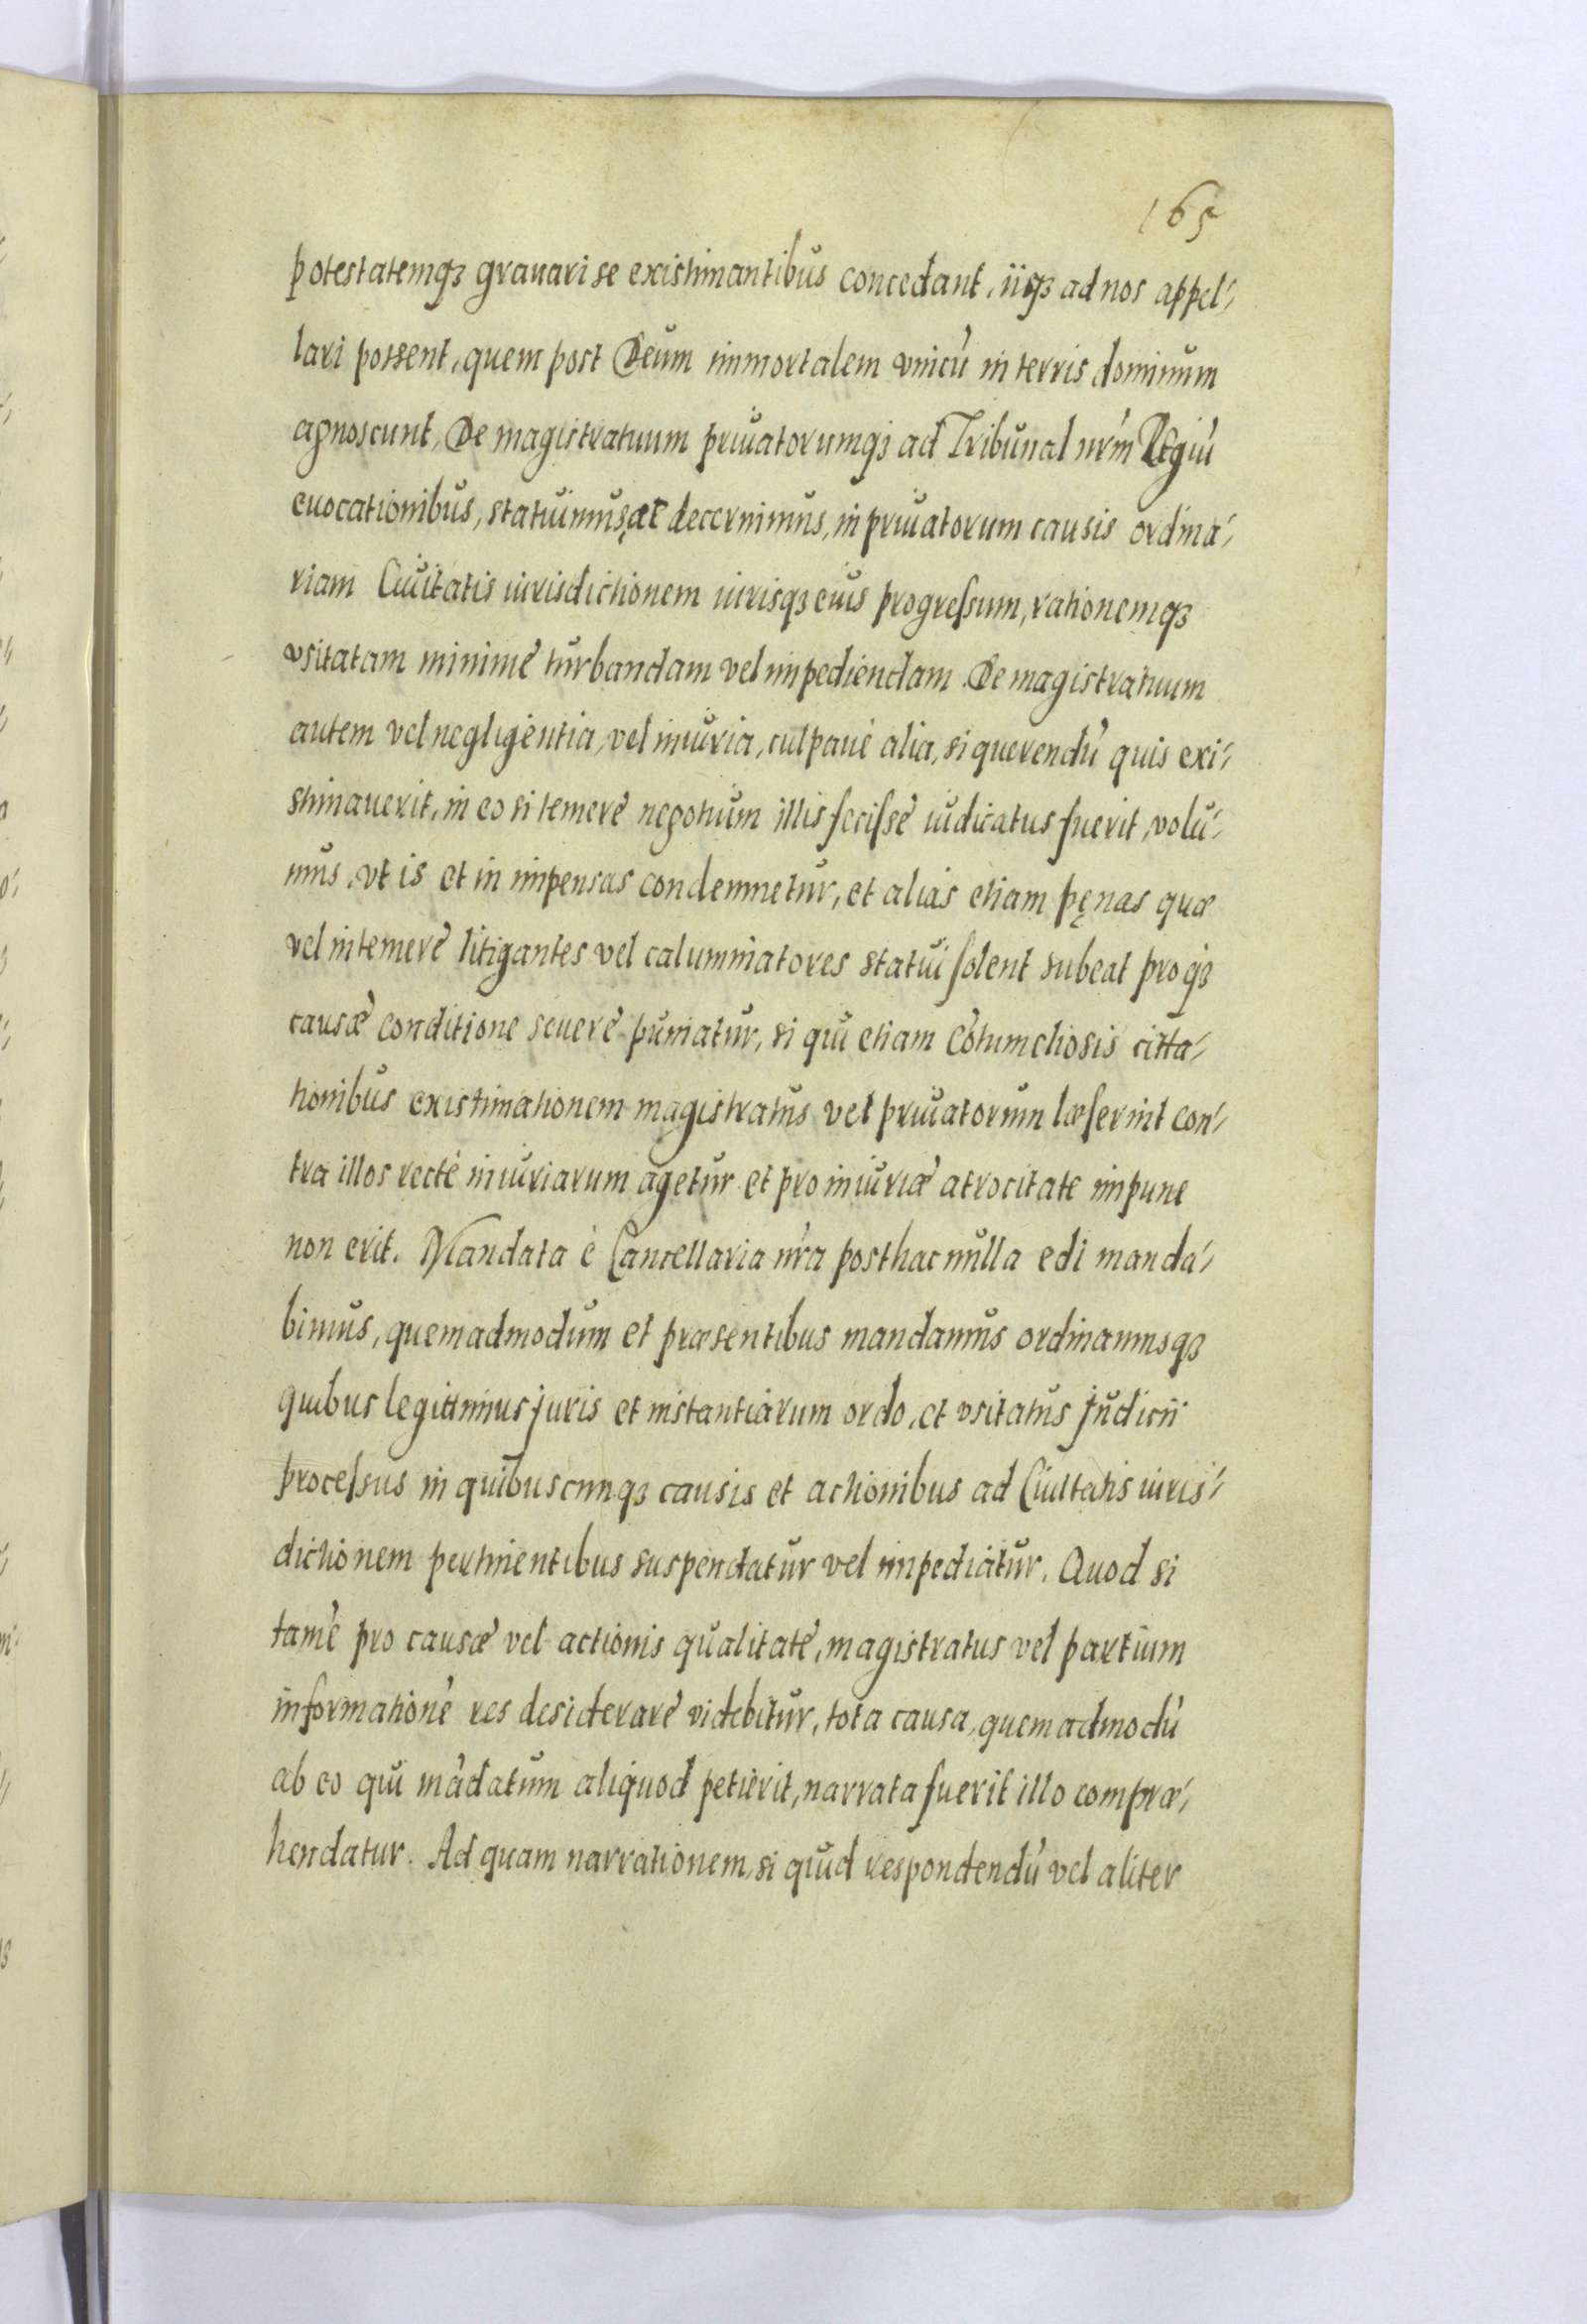 165
potestatemqȝ grauari se existimantibus concedant, iiqȝ ad nos appel-
lari possent, quem post Deum immortalem vnicū in terris dominum
agnoscunt, De magistratuum priuatorumqȝ ad Tribunal nr̄m Regiū
euocationibus, statuimus et decernimus, in priuatorum causis ordina-
riam Ciuitatis iurisdictionem iurisqȝ eius progreſsum, rationemqȝ
vsitatam minimè turbandam vel impediendam. De magistratuum
autem vel negligentia, vel iniuria, culpauè alia, si querendū quis exi-
stimauerit, in eo si temerè negotium illis feciſse iudicatus fuerit, volu-
mus, vt is et in impensas condemnetur, et aliàs etiam pęnas quæ
vel in temerè litigantes vel calumniatores statui solent subeat proqȝ
causæ conditione seuerè puniatur, si qui etiam cōtumeliosis citta-
tionibus existimationem magistratus vel priuatorum læserint con-
tra illos rectè iniuriarum agetur et pro iniuriæ atrocitate impune
non erit. Mandata è Cancellaria nr̄a posthac nulla edi manda-
bimus, quemadmodum et præsentibus mandamus ordinamusqȝ
quibus legittimus juris et instantiarum ordo, et vsitatus judicii
proceſsus in quibuscunqȝ causis et actionibus ad Ciuitatis iuris-
dictionem pertinentibus suspendatur vel impediatur. Quod si
tamē pro causæ vel actionis qualitate, magistratus vel partium
informationē res desiderare videbitur, tota causa, quemadmodū
ab eo qui mādatum aliquod petierit, narrata fuerit illo compræ-
hendatur. Ad quam narrationem, si quid respondendū vel aliter